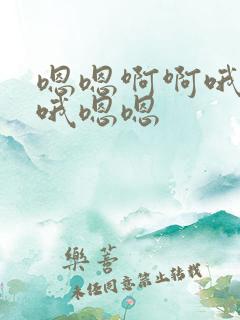 嗯嗯啊啊哦
哦嗯嗯
樂善
未经同意禁止转载